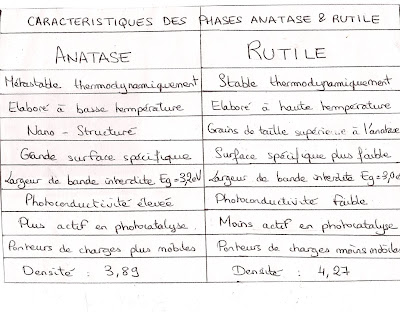 CARACTERISTIQUES DES PHASES ANATASE & RUTILE
ANATASE RUTILE
Métastable thermodynamiquement Stable thermodynamiquement
Elaboré à basse température Elaboré à haute température
Nano-Structuré Grains de taille supérieure à l'anatase
Grande surface spécifique Surface spécifique plus faible
Largeur de bande interdite Eg=3,2eV Largeur de bande interdite Eg=3,0e
Photoconductivité élevée Photoconductivité faible
Plus actif en photocatalyse. Moins actif en photocatalyse
Porteurs de charges plus mobiles Porteurs de charges moins mobiles
Densité : 3,89 Densité : 4,27